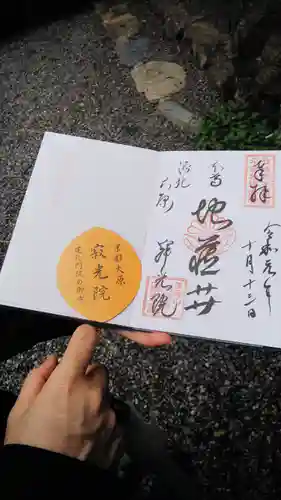 奉拝
令和元年
十月十三日
本尊
地蔵尊
洛北
大原
寂光院
京都大原
寂光院
建礼門院御